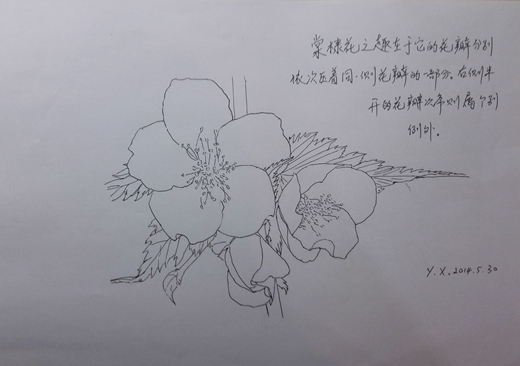 棠棣花之趣在于它的花瓣分别
依次压着同一侧花瓣的一部分。右侧半
开的花瓣次序则属个别
例外。
Y.X.2014.5.30